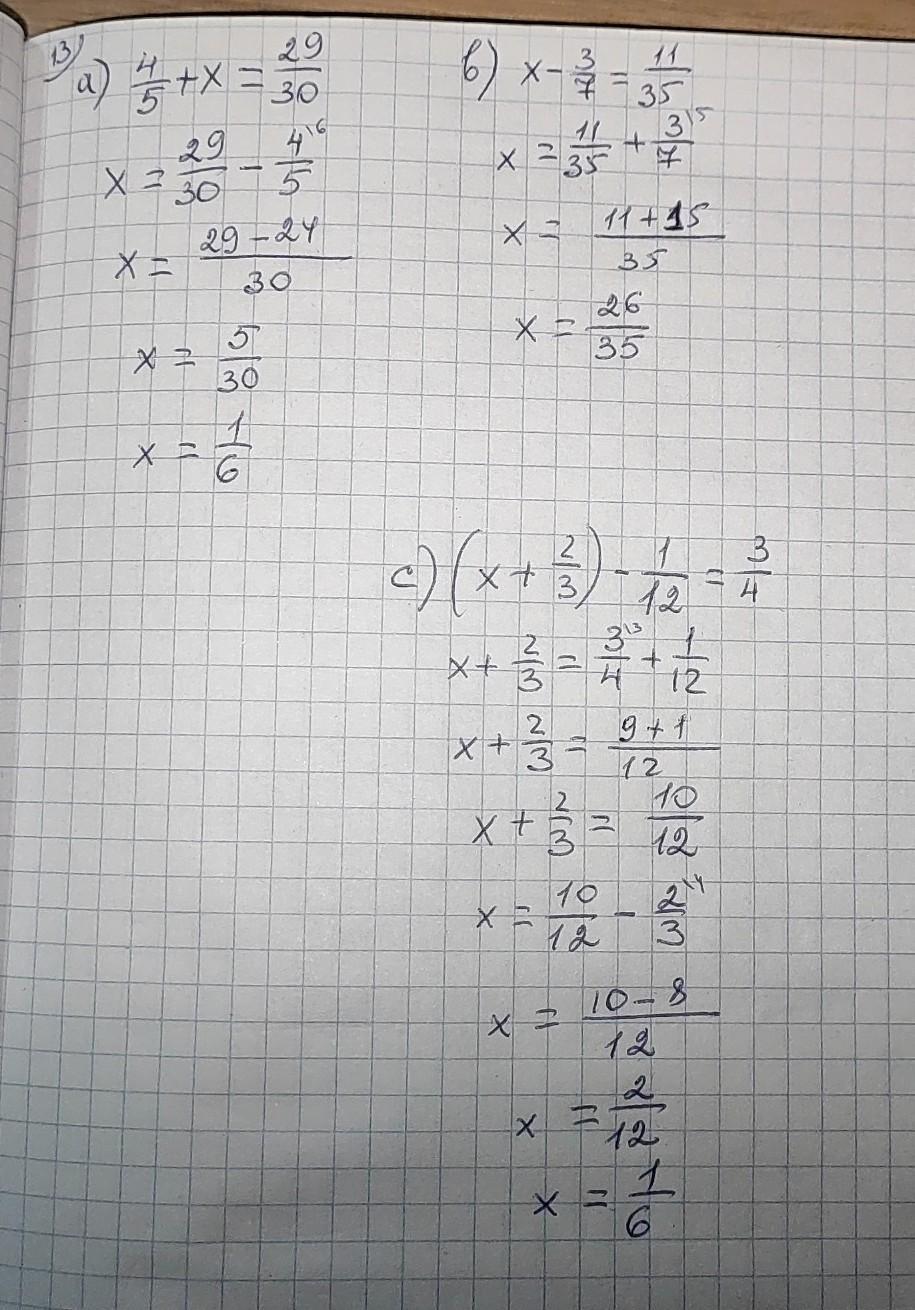 13)
a) 4/5 + x = 29/30
x = 29/30 - 4\6/5
x = (29 - 24)/30
x = 5/30
x = 1/6
b) x - 3/7 = 11/35
x = 11/35 + 3\5/7
x = (11 + 15)/35
x = 26/35
c) (x + 2/3) - 1/12 = 3/4
x + 2/3 = 3\3/4 + 1/12
x + 2/3 = (9 + 1)/12
x + 2/3 = 10/12
x = 10/12 - 2\4/3
x = (10 - 8)/12
x = 2/12
x = 1/6